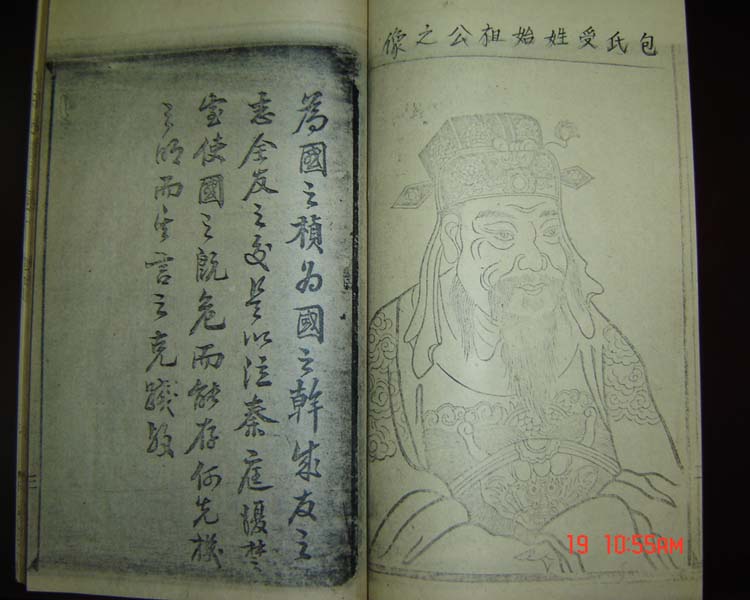 包氏受姓始祖公之像
為國之楨為國之幹成友之
志全友之交是以泣秦庭擾楚
室使國之既危而能存何先機
之明而其言之克踐
三
19 10:55AM